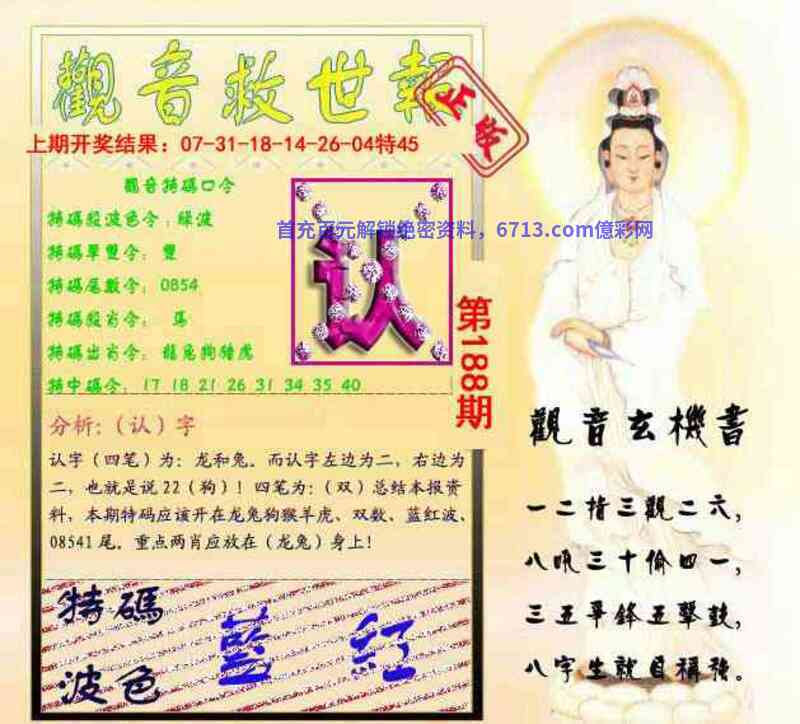 觀音救世報
正版
上期开奖结果：07-31-18-14-26-04特45
觀音特碼口令
特碼殺波色令：綠波
特碼單雙令：雙
特碼尾數令：0854
特碼殺肖令：馬
特碼出肖令：龍兔狗猪虎
特中碼令：17 18 21 26 31 34 35 40
认
首充百元解锁绝密资料，6713.com億彩网
第188期
分析:（认）字
认字（四笔）为：龙和兔。而认字左边为二，右边为
二，也就是说22（狗）！四笔为：（双）总结本报资
料，本期特码应该开在龙兔狗猴羊虎、双数、蓝红波、
08541尾。重点两肖应放在（龙兔）身上！
特碼
波色
藍 紅
觀音玄機書
一二指三觀二六，
八吼三十偷四一，
三五爭鋒五擊鼓，
八字生就自稱強。